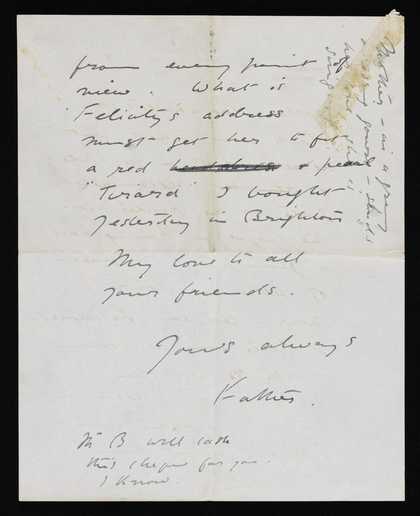 from every point of
view. What is
Felicity's address
must get her to
a red & pearl
"Tiriard" I bought
yesterday in Brighton
My love to all
your friends.
Yours always
Father.
Mr B will cash
this cheque for you.
I know